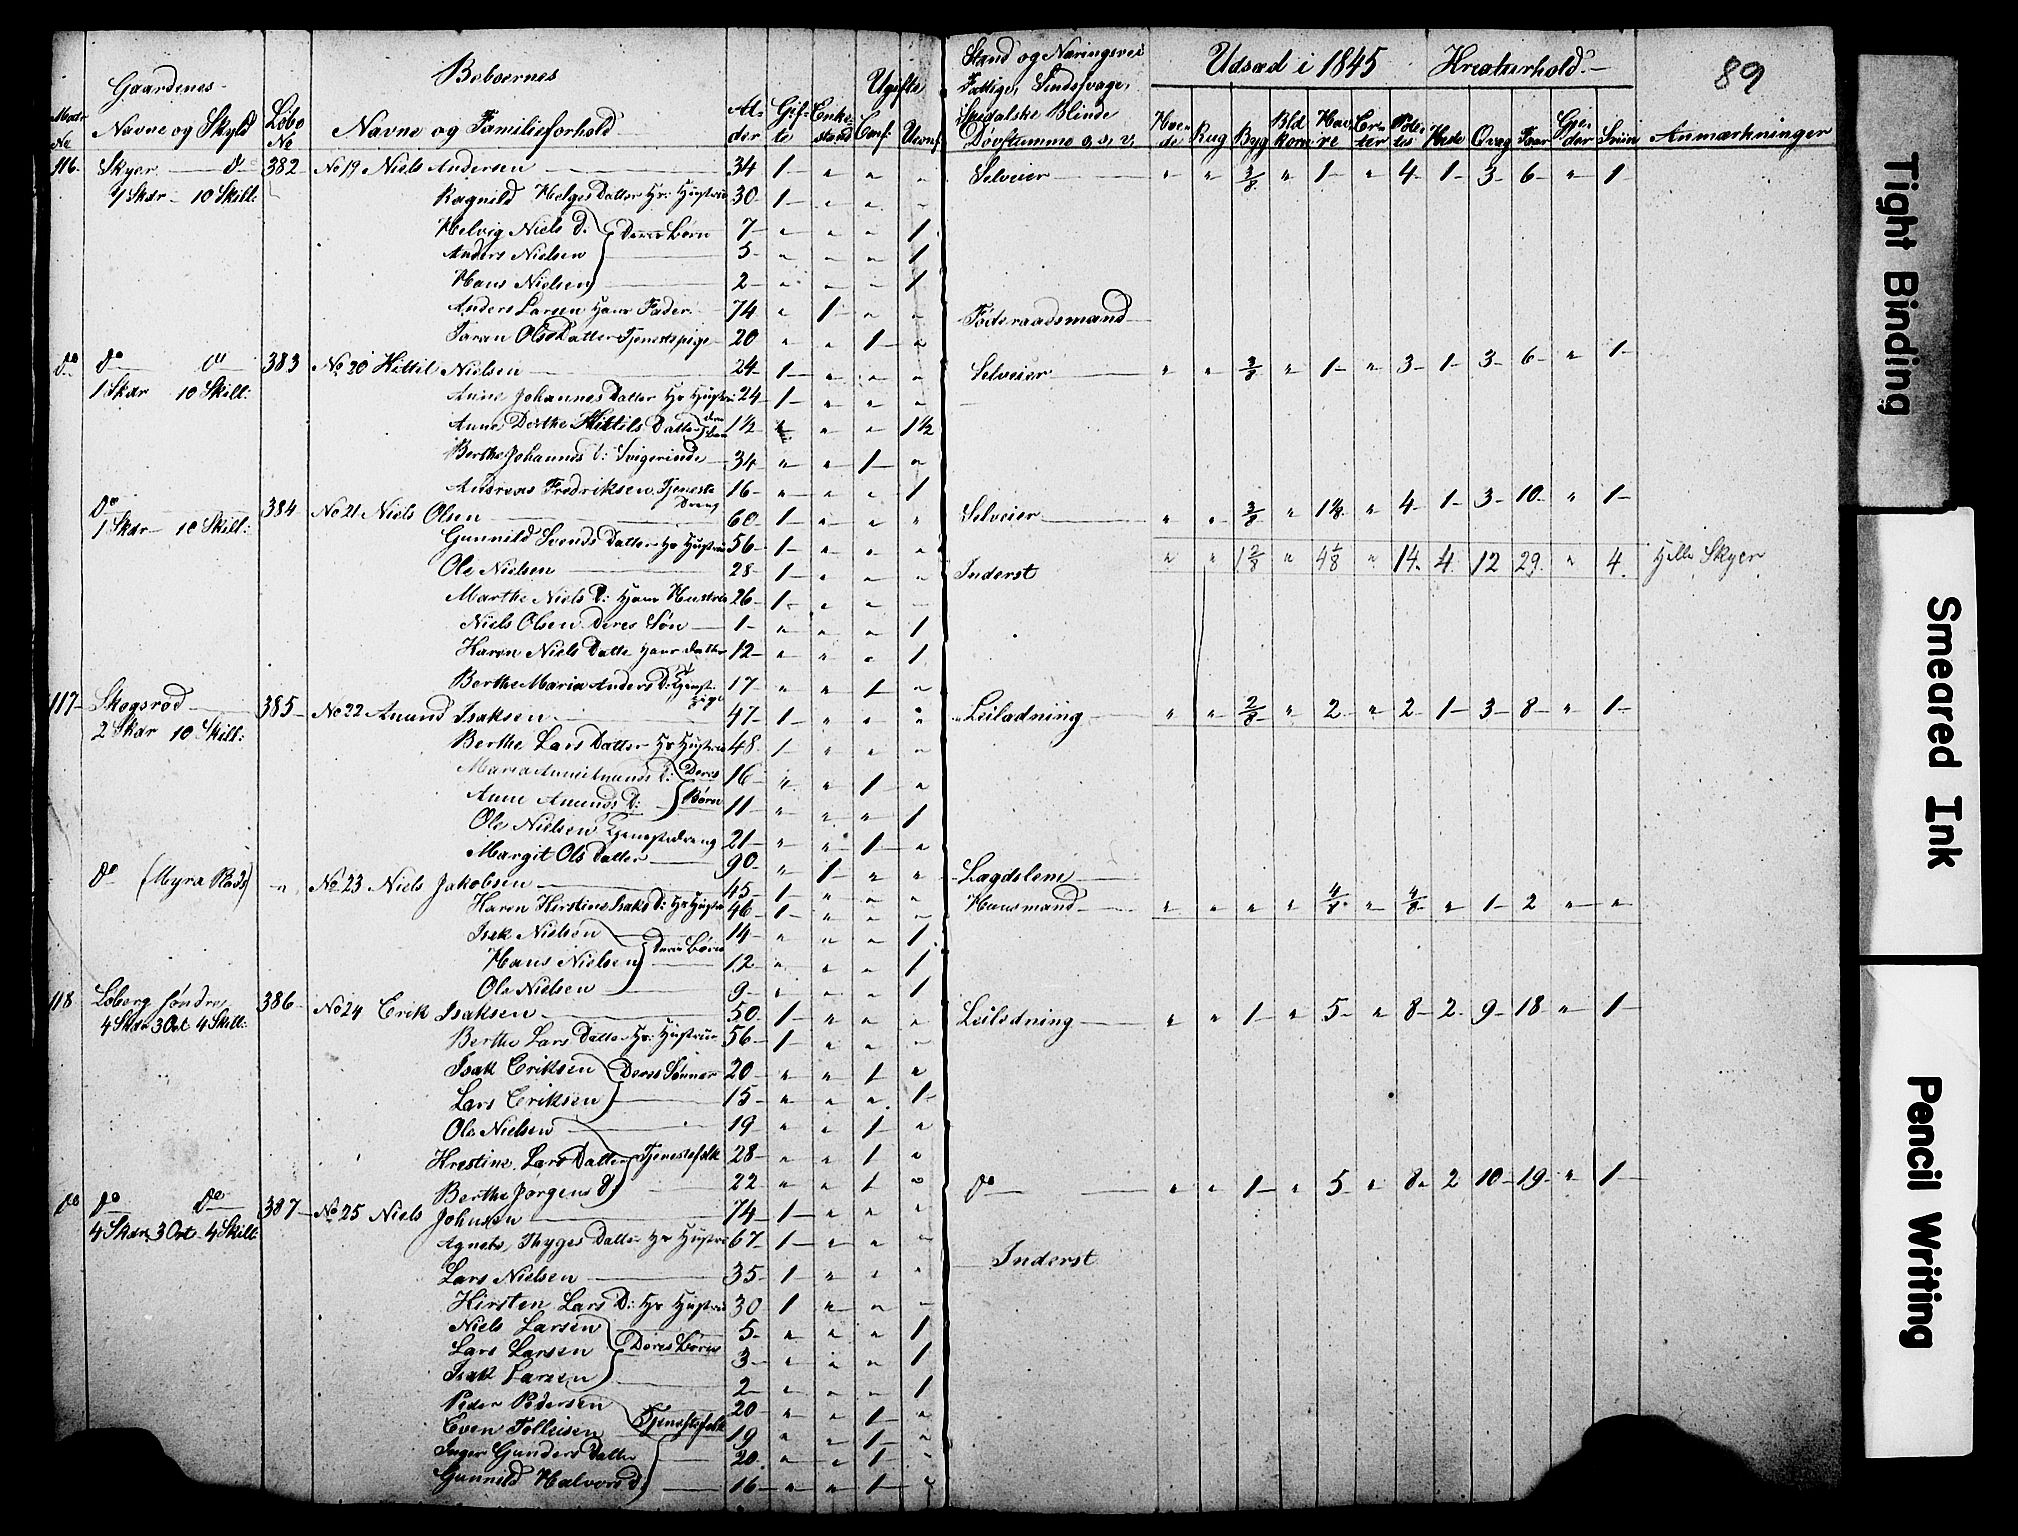 89
Gaardenes
Beboernes
Ugifte
Stand og Næringsvei
Fattige, Sindssvage,
Spedalske Blinde
Døvstumme o, s, v,
Udsæd i 1845 Kreaturhold
Matr No Navne og Skyld Løbe No Navne og Familieforhold Alder Gifte Enkestand Conf: Uconf. Hvede Rug Byg Bld korn Havre Erter Potetes Heste Qvæg Faar Gjeder Sviin Anmærkninger
116. Skyer do 382 No 19 Niels Andersen 34 1 " " " Selveier " " 3/8 " 1 " 4 1 3 6 " 1
1 Skdr 10 Skill: Ragnild Helges Datter Hs: Hustru 30 1 " " "
Helvig Niels D: Deres Børn 7 " " " 1
Anders Nielsen 5 " " " 1
Hans Nielsen 2 " " " 1
Anders Larsen Hans Fader 74 " 1 " " Føderaadsmand
Olsdatter Tjenestepige 20 " " 1 "
do do do 383 No 20 Kittil Nielsen 24 1 " " " Selveier " " 3/8 " 1 " 3 1 3 6 " 1
1 Skdr 10 Skill: Anne Johannes Datter Hs Hustru 24 1 " " "
Anne Dorthe Kittils Datter 1½ " " 1½
Berthe Johannes D: Svigerinde 34 " " 1 "
Andreas Fredriksen Tjeneste Dreng 16 " " " 1
do 384 No 21 Niels Olsen 60 1 " " " Selveier " " 3/8 " 4 1 3 10 " 1
1 Skdr 10 Skill: Gunnild Svends Datter Hs Hustru 56 1 " " "
Ole Nielsen 28 1 " " " Inderst " " " " 14 4 12 29 " 4 Hele Skyer
Marthe Niels D: Hans Hustru 26 1 " " "
Niels Olsen Deres Søn 1 " " " 1
Karen Niels Datter Hans datter 12 " " " 1
Berthe Maria Anders D: Tjenstpige 17 " " 1 "
117 Skogsrød 385 No 22 Amund Isaksen 47 1 " " " Leilædning " " 2/8 " 2 " 2 1 3 8 " 1
2 Skdr 10 Skill: Berthe Lars Datter Hs Hustru 48 1 " " "
Maria Amunds D: Deres 16 " " 1 "
Anne Amunds D: Børn 11 " " " 1
Ole Nielsen Tjenestedreng 21 " " 1 "
Margit Ols Datter 90 " 1 " " Lægdslem
do (Myra Plads) " No 23 Niels Jakobsen 45 1 " " "
Karen Kirstine Isaks D: Hs Hustru 46 1 " " " Huusmand " " " " 4/8 " 4/8 " 1 2 " "
Isak Nielsen 14 " " " 1
Hans Nielsen Deres Børn 12 " " " 1
Ole Nielsen 9 " " " 1
118 Løberg søndre 386 No 24 Erik Isaksen 50 1 " " " Leilædning " " 1 " 5 " 8 2 9 18 " 1
4 Skdr 3 Ort 4 Skill: Berthe Lars Datter Hs: Hustrue 56 1 " " "
Isak Eriksen Deres Sønner 20 " " 1 "
Lars Eriksen 15 " " " 1
Ole Nielsen 19 " " 1 "
Krestine Lars Datter Tjenestefolk 28 " " 1 "
Berthe Jørgens D: 22 " " 1 " do " " 1 " 5 " 8 2 10 19 " 1
do do do 387 No 25 Niels Johnsen 74 1 " " "
4 Skdr 3 Ort 4 Skill: Agnete Thyges Datter Hs Hustru 67 1 " " "
Lars Nielsen 35 1 " " " Inderst
Kirsten Lars D: Hs Hustru 30 1 " " "
Niels Larsen 5 " " " 1
Lars Larsen Deres Børn 3 " " " 1
Isak Larsen 2 " " " 1
Peder Pedersen 20 " " 1 "
Even Tollefsen Tjenestefolk 19 " " 1 "
Inger Gunders Datter 20 " " 1 "
Gunnild Halvors D: 16 " " 1 "
Tight Binding
Smeared Ink
Pencil Writing